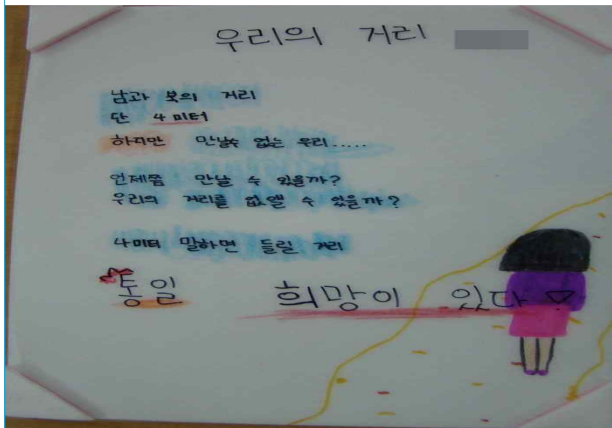 우리의 거리
남과 북의 거리
단 4미터
하지만 만날수 없는 우리.....
언제쯤 만날 수 있을까?
우리의 거리를 없앨 수 있을까?
4미터 말하면 들릴 거리
통일 희망이 있다